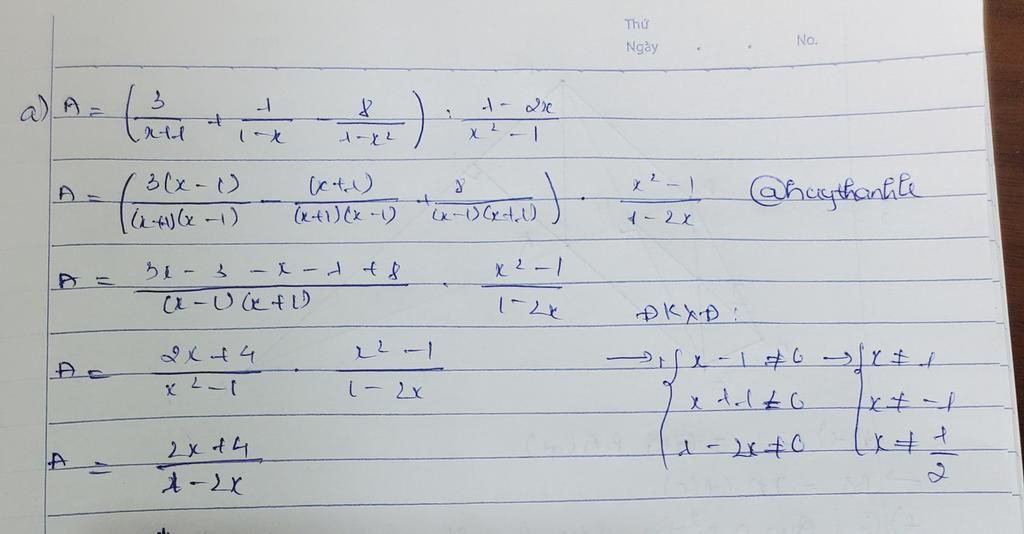 Thứ
Ngày . . No.
a) A = (3/(x+1) + 1/(1-x) - 8/(1-x²)) : (1-2x)/(x²-1)
A = (3(x-1)/((x+1)(x-1)) - (x+1)/((x+1)(x-1)) + 8/((x-1)(x+1))) . (x²-1)/(1-2x) @huythanhle
A = (3x-3-x-1+8)/((x-1)(x+1)) . (x²-1)/(1-2x)
ĐKXĐ:
A = (2x+4)/(x²-1) . (x²-1)/(1-2x) → { x-1≠0 → { x≠1
x+1≠0 x≠-1
A = (2x+4)/(1-2x) 1-2x≠0 x≠1/2